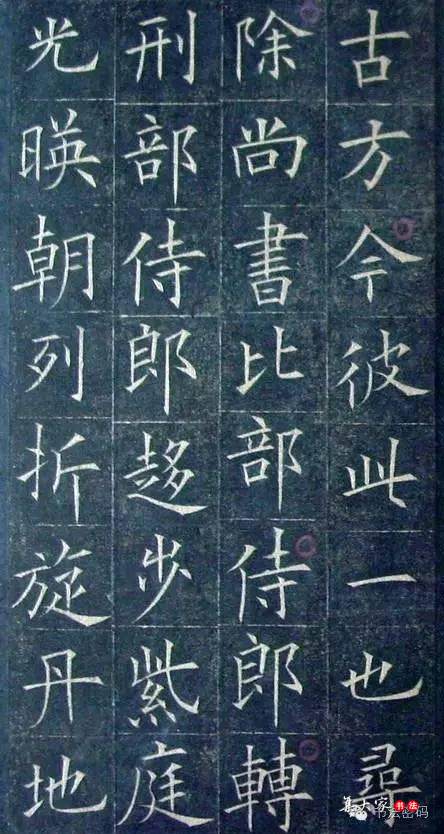 古方今彼此一也尋
除尚書比部侍郎轉
刑部侍郎趍步紫庭
光暎朝列折旋丹地
集大家书法
书法密码